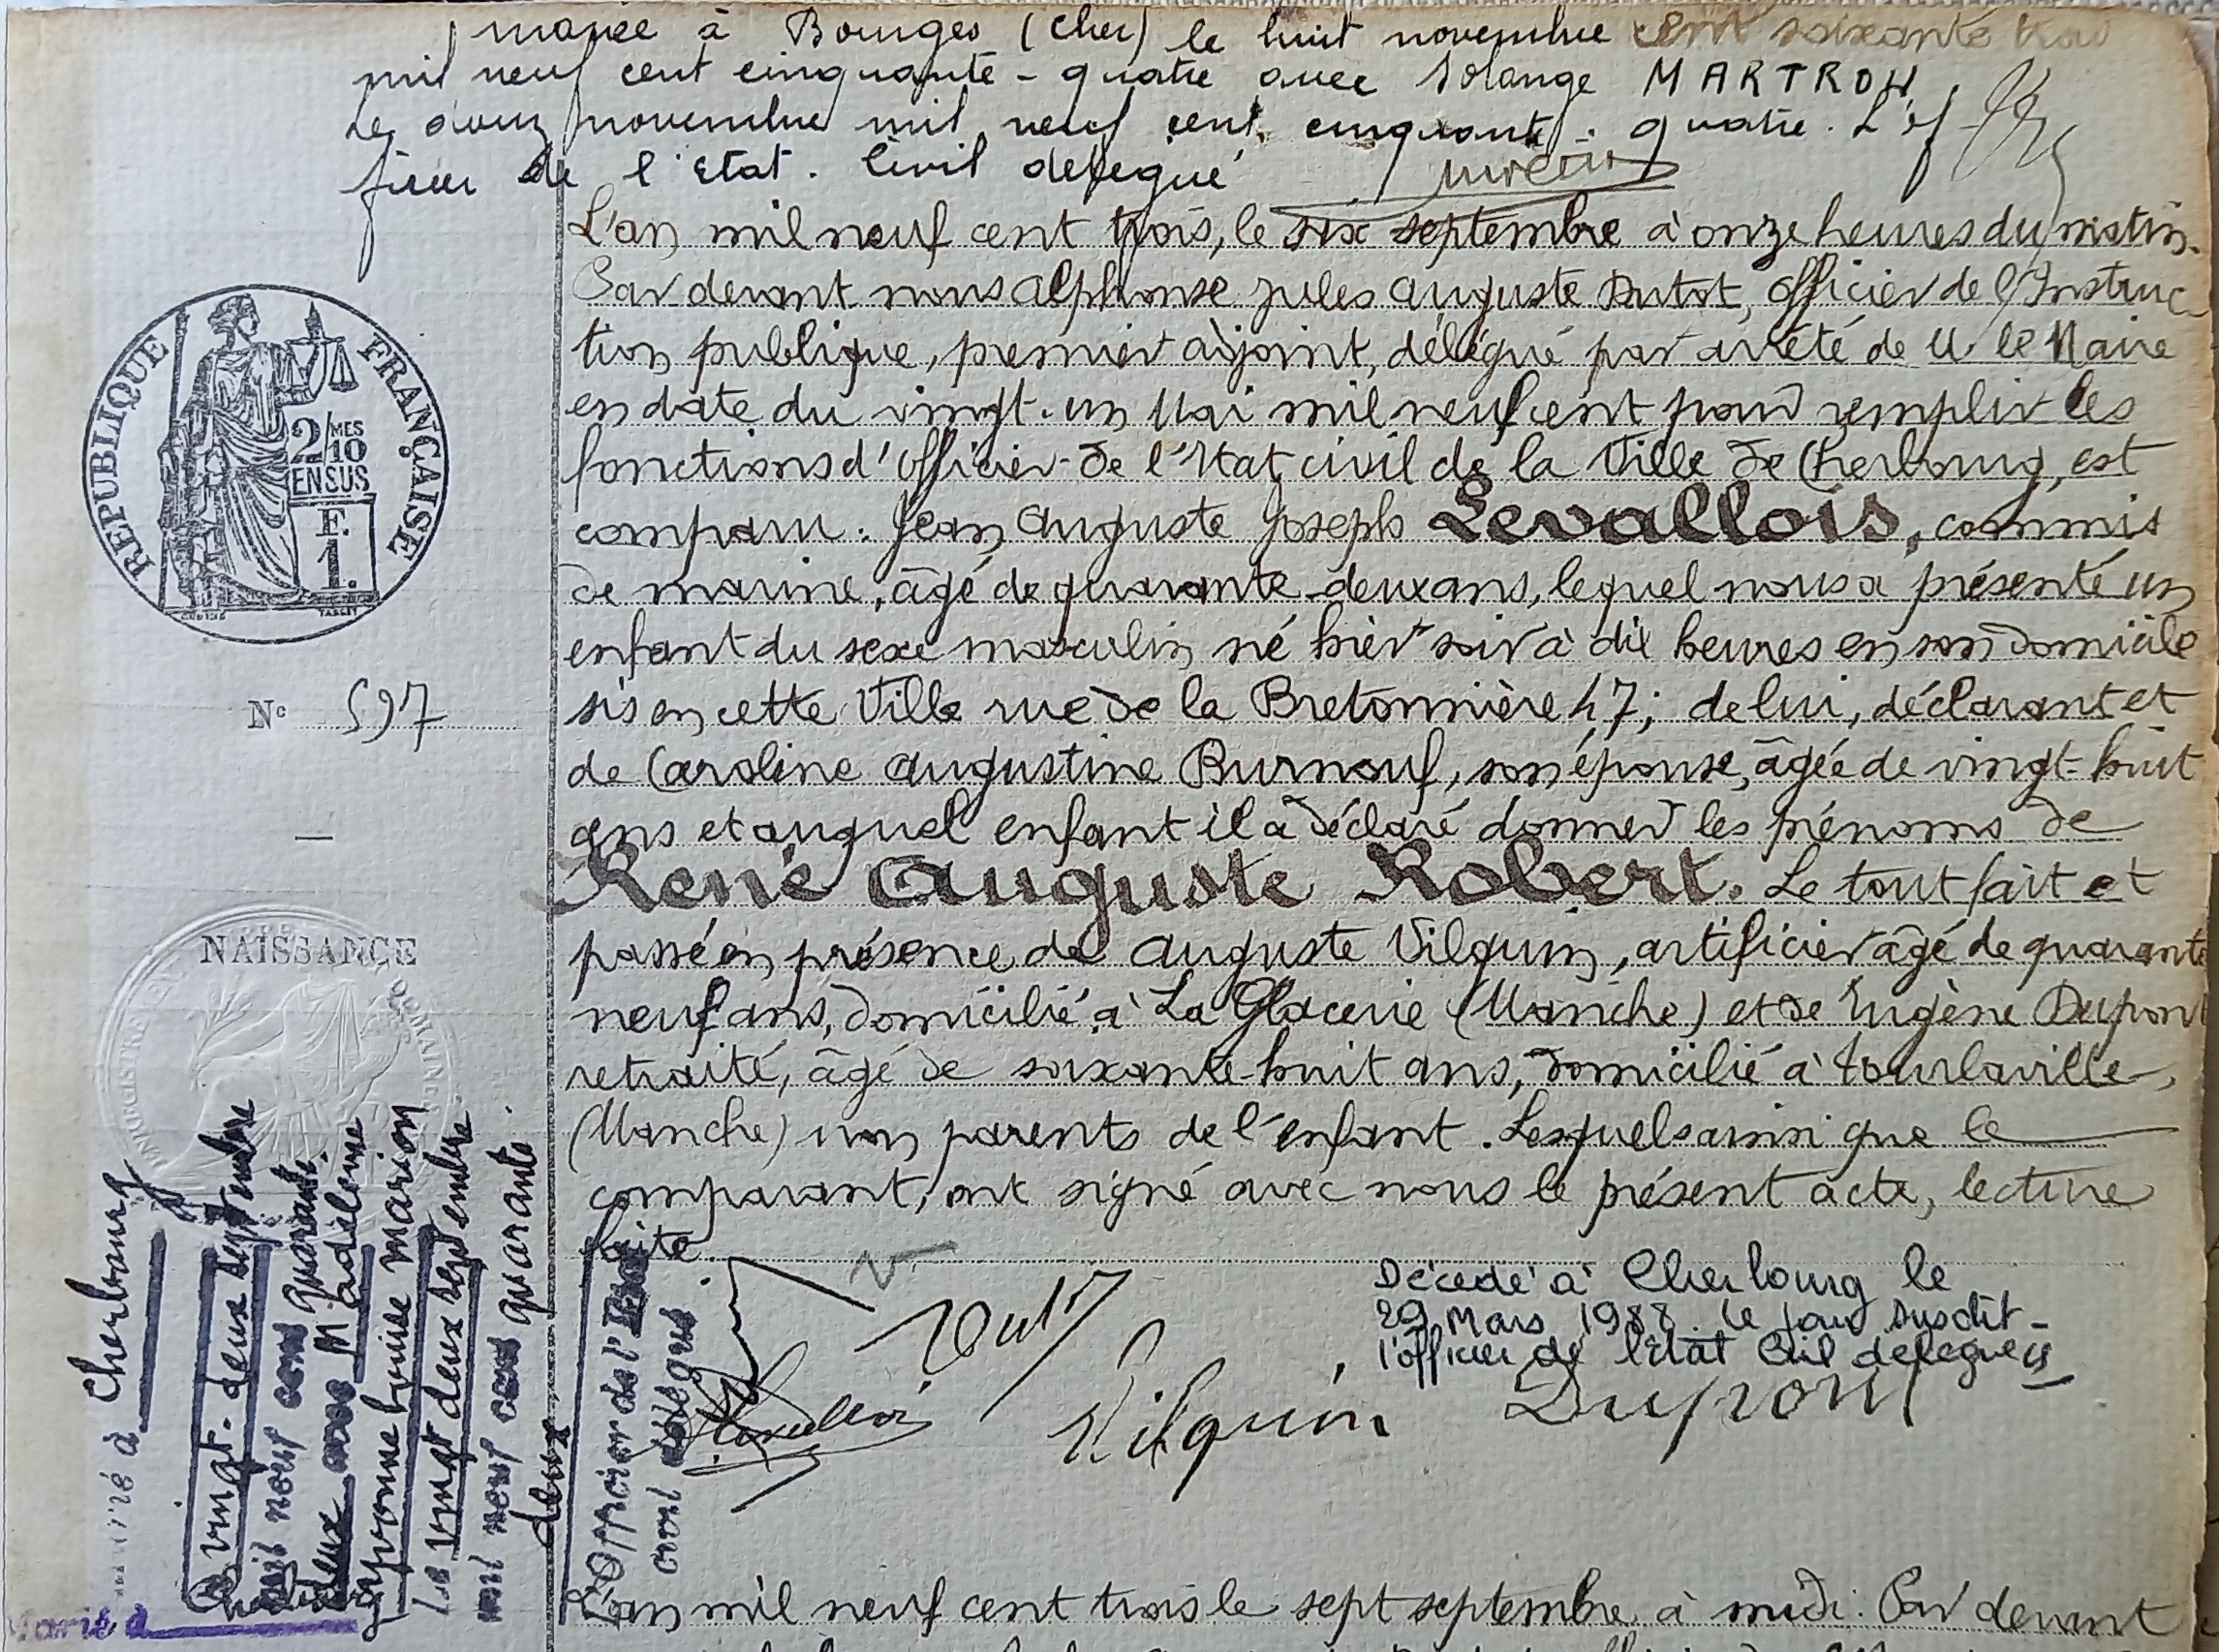 mariée à Bourges (Cher) le huit novembre cent soixante trois
mil neuf cent cinquante-quatre avec Solange MARTRON,
Le douze novembre mil neuf cent cinquante-quatre. L'of
ficier de l'Etat. Civil délégué
L'an mil neuf cent trois, le six septembre à onze heures du matin.
Par devant nous Alphonse Jules Auguste Dutot, Officier de l'Instruc
tion publique, premier adjoint, délégué par arrêté de M. le Maire
en date du vingt-un Mai mil neuf cent pour remplir les
fonctions d'Officier de l'Etat civil de la Ville de Cherbourg, est
comparu : Jean Auguste Joseph Levallois, commis
de marine, âgé de quarante-deux ans, lequel nous a présenté un
enfant du sexe masculin né hier soir à dix heures en son domicile
sis en cette Ville rue de la Bretonnière 47; de lui, déclarant et
de Caroline Augustine Burnouf, son épouse, âgée de vingt-huit
ans et auquel enfant il a déclaré donner les prénoms de
René Auguste Robert. Le tout fait et
passé en présence de Auguste Vilquin, artificier âgé de quarante
neuf ans, domicilié à La Glacerie (Manche) et de Eugène Dupont
retraité, âgé de soixante-huit ans, domicilié à Tourlaville
(Manche) non parents de l'enfant. Lesquels ainsi que le
comparant, ont signé avec nous le présent acte, lecture
faite.
Dutot
Levallois
Vilquin
Dupont
Décédé à Cherbourg le
29 Mars 1988. le jour susdit -
l'officier de l'Etat Civil délégué
REPUBLIQUE FRANÇAISE
2/MES
10
EN SUS
F.
1.
TASSET
N° 597
—
NAISSANCE
Marié à Cherbourg
le vingt-deux septembre
mil neuf cent quarante
deux avec Madeleine
Yvonne Louise Marion
Le vingt deux septembre
mil neuf cent quarante
deux
L'Officier de l'Etat
civil délégué
Marié à
L'an mil neuf cent trois le sept septembre à midi. Par devant